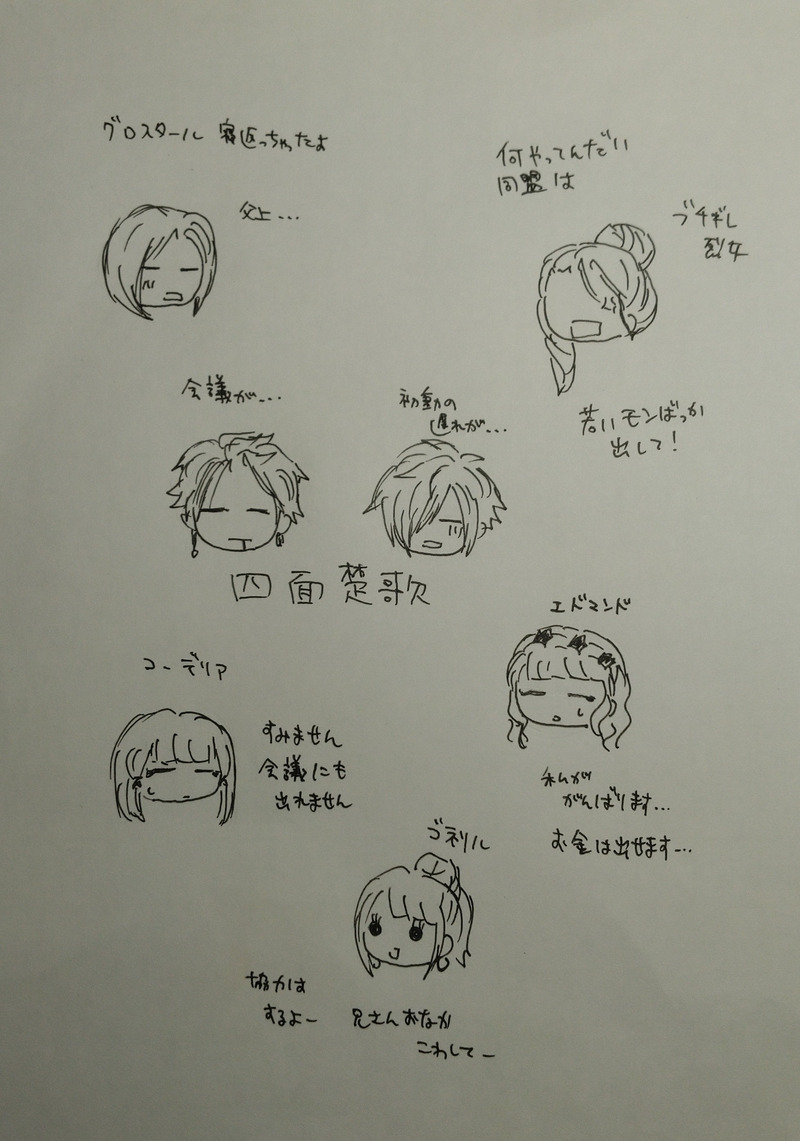 グロスタール 寝返っちゃったよ
父上...
何やってんだい
同盟は
ブチギレ
烈女
若いモンばっか
出して!
会議が...
初動の
遅れが...
四面楚歌
エドマンド
コーデリア
すみません
会議にも
出れません
私が
がんばります...
お金は出せます...
ゴネリル
協力は
するよー
兄さんおなか
こわしてー